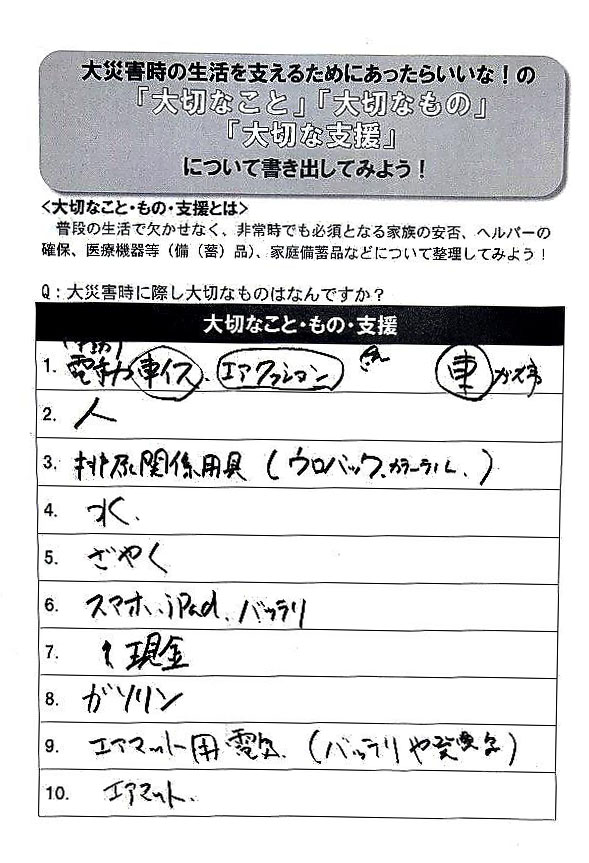 大災害時の生活を支えるためにあったらいいな！の
「大切なこと」「大切なもの」
「大切な支援」
について書き出してみよう！
<大切なこと・もの・支援とは>
普段の生活で欠かせなく、非常時でも必須となる家族の安否、ヘルパーの
確保、医療機器等（備（蓄）品）、家庭備蓄品などについて整理してみよう！
Q：大災害時に際し大切なものはなんですか？
大切なこと・もの・支援
1. 電動車イス、エアクッション 車
2. 人
3. 排尿関係用具（ウロバック、カテーテル、）
4. 水、
5. ざやく
6. スマホ、iPad、バッテリ
7. 現金
8. ガソリン
9. エアマット用電気、（バッテリや発電き）
10. エアマット、